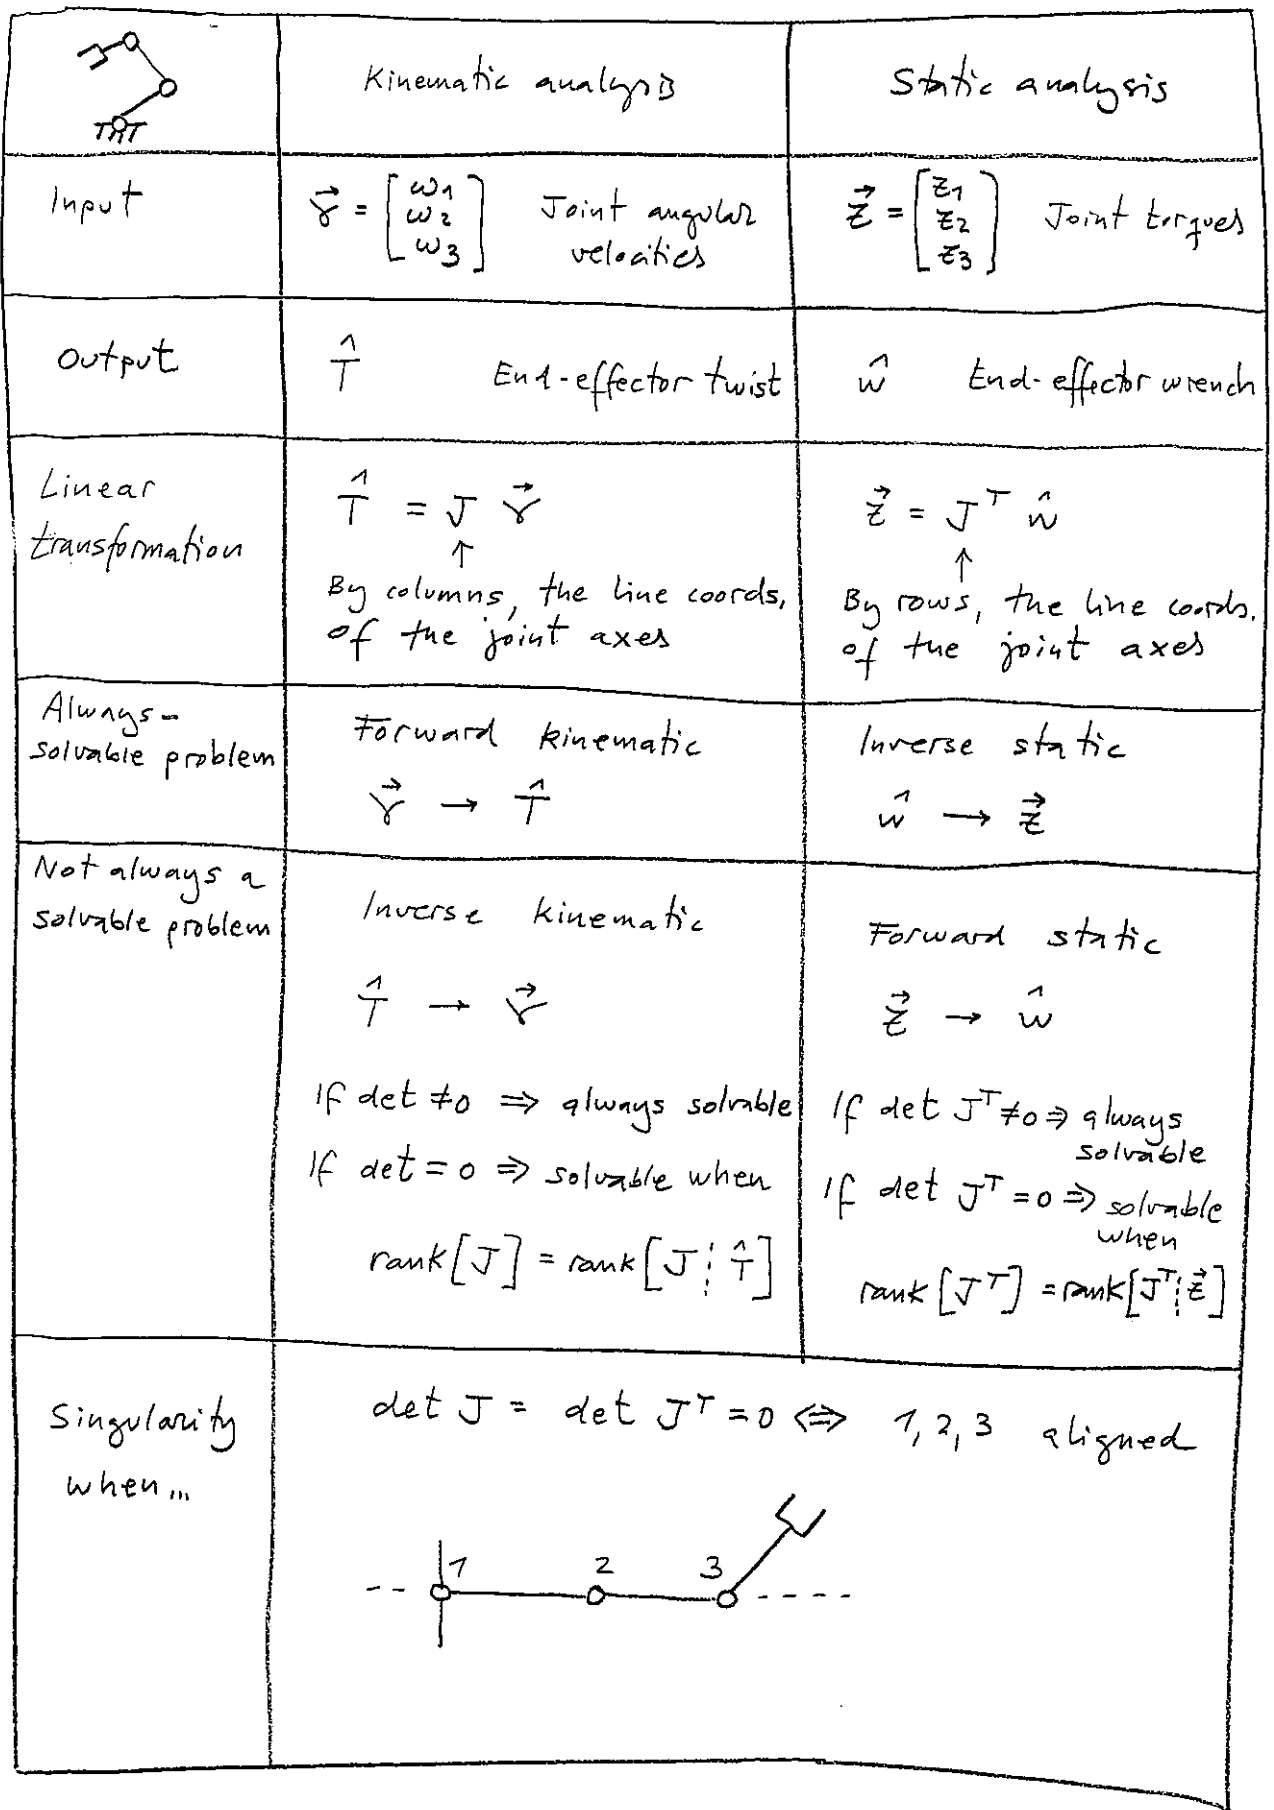 Kinematic analysis
Static analysis
Input
γ⃗ = [ω1 ω2 ω3] Joint angular
velocities
z⃗ = [z1 z2 z3] Joint torques
Output
T̂ End-effector twist
ŵ End-effector wrench
Linear
transformation
T̂ = J γ⃗
↑
By columns, the line coords.
of the joint axes
z⃗ = Jᵀ ŵ
↑
By rows, the line coords.
of the joint axes
Always-
solvable problem
Forward kinematic
γ⃗ → T̂
Inverse static
ŵ → z⃗
Not always a
solvable problem
Inverse kinematic
T̂ → γ⃗
If det ≠0 ⇒ always solvable
If det = 0 ⇒ solvable when
rank[J] = rank[J ¦ T̂]
Forward static
z⃗ → ŵ
If det Jᵀ ≠0 ⇒ always
solvable
If det Jᵀ = 0 ⇒ solvable
when
rank[Jᵀ] = rank[Jᵀ ¦ z⃗]
Singularity
when...
det J = det Jᵀ = 0 ⇔ 1, 2, 3 aligned
1 2 3